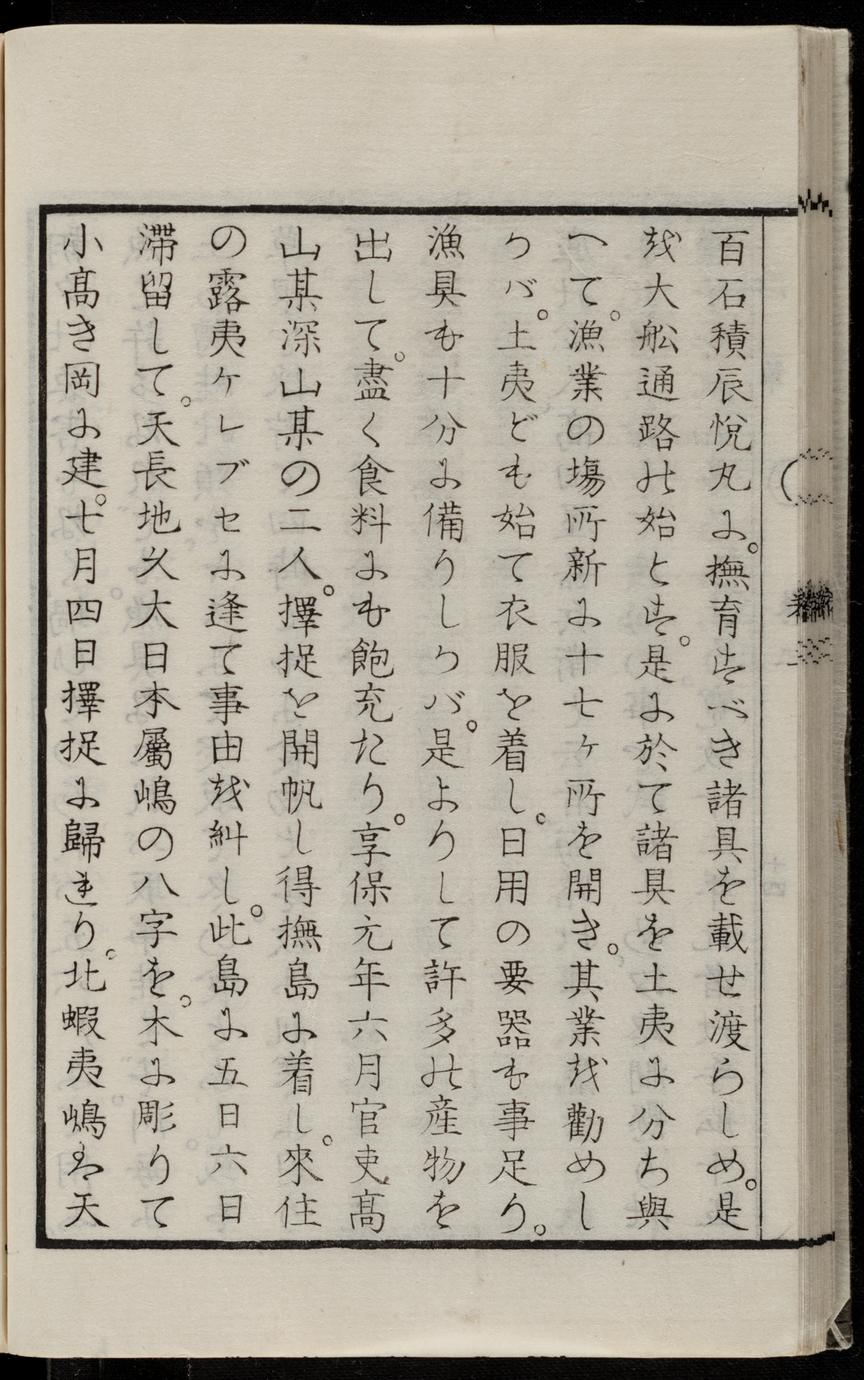 百石積辰悅丸に。撫育すべき諸具を載せ渡らしめ。是
越大舩通路の始とす。是に於て諸具を土夷に分ち與
へて。漁業の塲所新に十七ヶ所を開き。其業越勸めし
かバ。土夷ども始て衣服を着し。日用の要器も事足り。
漁具も十分に備りしかバ。是よりして許多の産物を
出して。盡く食料にも飽充たり。享保元年六月官吏髙
山某深山某の二人。擇捉を開帆し得撫島に着し。來住
の露夷ケレブセに逢て事由越糾し。此島に五日六日
滯留して。天長地久大日本屬嶋の八字を。木に彫りて
小髙き岡に建。七月四日擇捉に歸れり。北蝦夷嶋は天